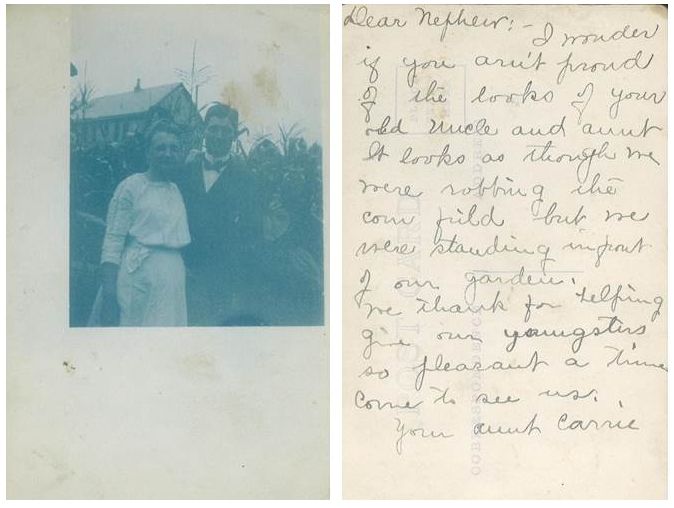 Dear Nephew:- I wonder
if you arn't proud
of the looks of your
old Uncle and aunt
It looks as though we
were robbing the
corn field but we
were standing infront
of our garden.
we thank for helping
give our youngsters
so pleasant a time
Come to see us.
Your aunt Carrie
POST CARD
CORRESPONDENCE